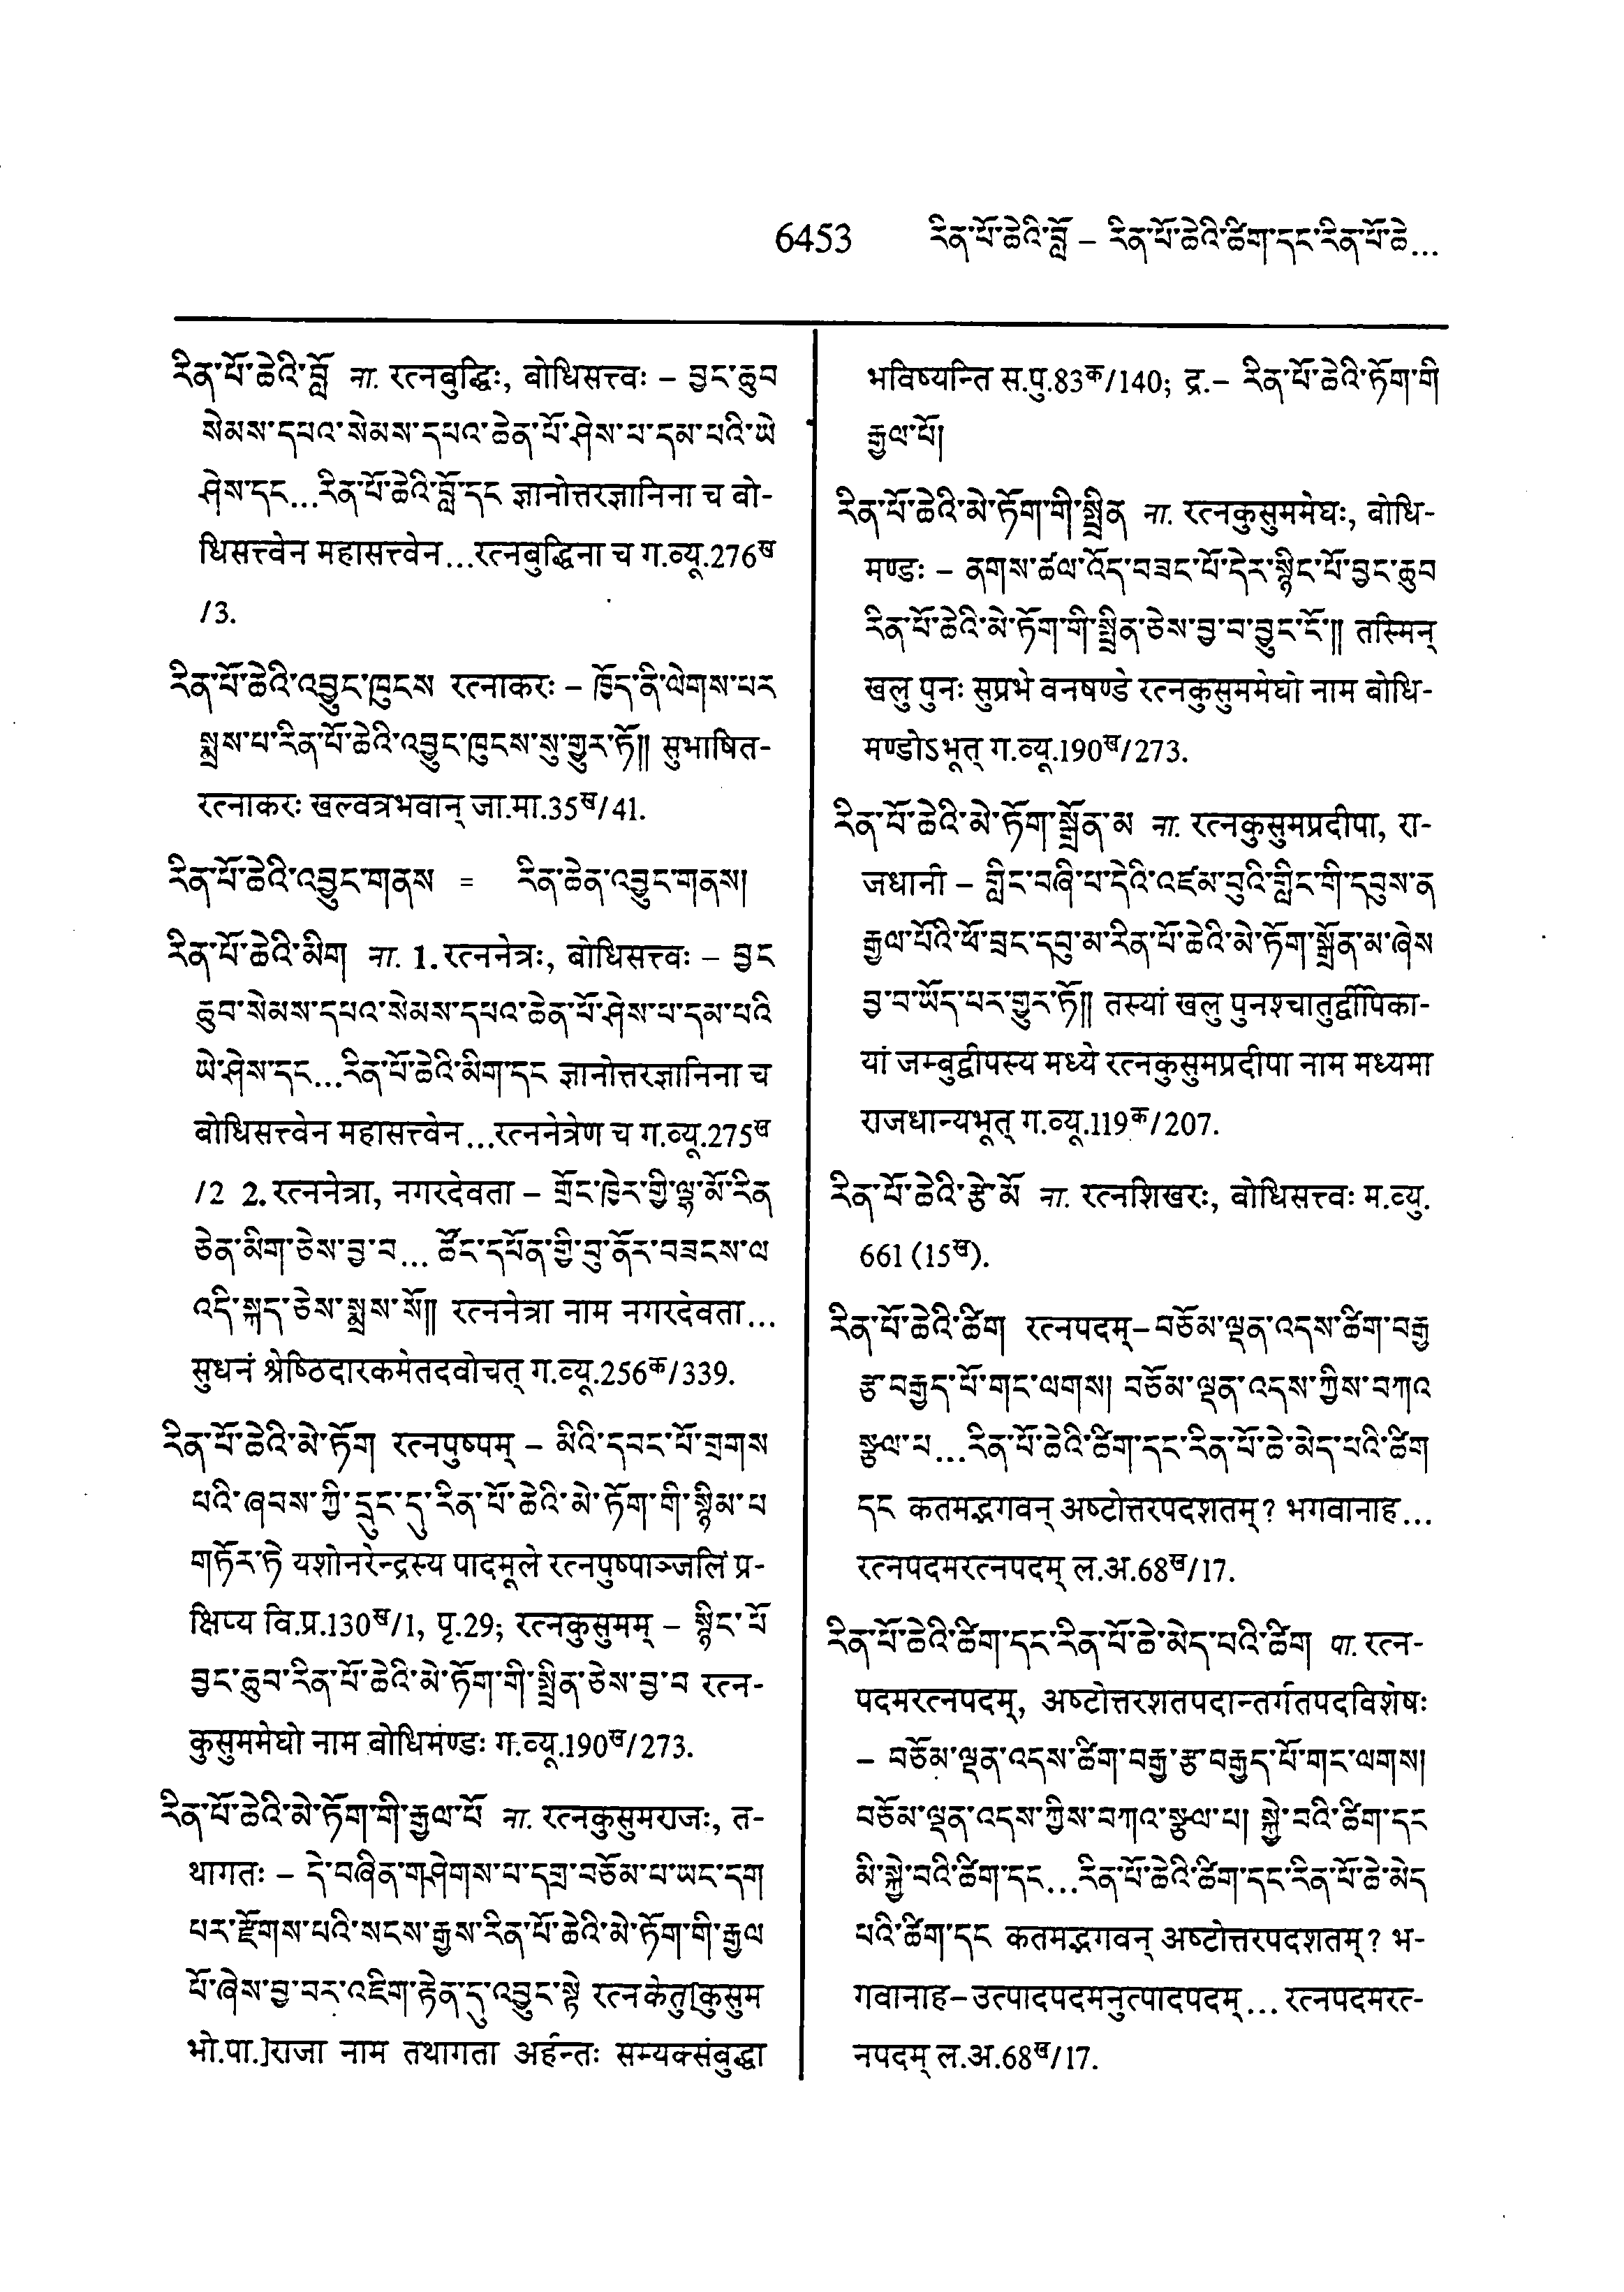 6453 རིན་པོ་ཆེའི་བློ – རིན་པོ་ཆེའི་ཚིག་དང་རིན་པོ་ཆེ...
རིན་པོ་ཆེའི་བློ ना. रत्नबुद्धिः, बोधिसत्त्वः – བྱང་ཆུབ
སེམས་དཔའ་སེམས་དཔའ་ཆེན་པོ་ཤེས་པ་དམ་པའི་ཡེ
ཤེས་དང...རིན་པོ་ཆེའི་བློ་དང ज्ञानोत्तरज्ञानिना च बो-
धिसत्त्वेन महासत्त्वेन...रत्नबुद्धिना च ग.व्यू.276ख
/3.
རིན་པོ་ཆེའི་འབྱུང་ཁུངས रत्नाकरः – ཁྱོད་ནི་ལེགས་པར
སྨྲས་པ་རིན་པོ་ཆེའི་འབྱུང་ཁུངས་སུ་གྱུར་ཏོ༎ सुभाषित-
रत्नाकरः खल्वत्रभवान् जा.मा.35ख/41.
རིན་པོ་ཆེའི་འབྱུང་གནས = རིན་ཆེན་འབྱུང་གནས།
རིན་པོ་ཆེའི་མིག ना. 1. रत्ननेत्रः, बोधिसत्त्वः – བྱང
ཆུབ་སེམས་དཔའ་སེམས་དཔའ་ཆེན་པོ་ཤེས་པ་དམ་པའི
ཡེ་ཤེས་དང...རིན་པོ་ཆེའི་མིག་དང ज्ञानोत्तरज्ञानिना च
बोधिसत्त्वेन महासत्त्वेन...रत्ननेत्रेण च ग.व्यू.275ख
/2 2. रत्ननेत्रा, नगरदेवता – གྲོང་ཁྱེར་གྱི་ལྷ་མོ་རིན
ཅེན་མིག་ཅེས་བྱ་བ... ཚོང་དཔོན་གྱི་བུ་ནོར་བཟངས་ལ
འདི་སྐད་ཅེས་སྨྲས་སོ༎ रत्ननेत्रा नाम नगरदेवता...
सुधनं श्रेष्ठिदारकमेतदवोचत् ग.व्यू.256क/339.
རིན་པོ་ཆེའི་མེ་ཏོག रत्नपुष्पम् – མིའི་དབང་པོ་གྲགས
པའི་ཞབས་ཀྱི་དྲུང་དུ་རིན་པོ་ཆེའི་མེ་ཏོག་གི་སྙིམ་པ
གཏོར་ཏེ यशोनरेन्द्रस्य पादमूले रत्नपुष्पाञ्जलिं प्र-
क्षिप्य वि.प्र.130ख/1, पृ.29; रत्नकुसुमम् – སྙིང་པོ
བྱང་ཆུབ་རིན་པོ་ཆེའི་མེ་ཏོག་གི་སྤྲིན་ཅེས་བྱ་བ रत्न-
कुसुममेघो नाम बोधिमण्डः ग.व्यू.190ख/273.
རིན་པོ་ཆེའི་མེ་ཏོག་གི་རྒྱལ་པོ ना. रत्नकुसुमराजः, त-
थागतः – དེ་བཞིན་གཤེགས་པ་དགྲ་བཅོམ་པ་ཡང་དག
པར་རྫོགས་པའི་སངས་རྒྱས་རིན་པོ་ཆེའི་མེ་ཏོག་གི་རྒྱལ
པོ་ཞེས་བྱ་བར་འཇིག་རྟེན་དུ་འབྱུང་སྟེ रत्नकेतु[कुसुम
भो.पा.]राजा नाम तथागता अर्हन्तः सम्यक्संबुद्धा
भविष्यन्ति स.पु.83क/140; द्र.– རིན་པོ་ཆེའི་ཏོག་གི
རྒྱལ་པོ།
རིན་པོ་ཆེའི་མེ་ཏོག་གི་སྤྲིན ना. रत्नकुसुममेघः, बोधि-
मण्डः – ནགས་ཚལ་འོད་བཟང་པོ་དེར་སྙིང་པོ་བྱང་ཆུབ
རིན་པོ་ཆེའི་མེ་ཏོག་གི་སྤྲིན་ཅེས་བྱ་བ་བྱུང་ངོ༎ तस्मिन्
खलु पुनः सुप्रभे वनषण्डे रत्नकुसुममेघो नाम बोधि-
मण्डोऽभूत् ग.व्यू.190ख/273.
རིན་པོ་ཆེའི་མེ་ཏོག་སྒྲོན་མ ना. रत्नकुसुमप्रदीपा, रा-
जधानी – གླིང་བཞི་པ་དེའི་འཛམ་བུའི་གླིང་གི་དབུས་ན
རྒྱལ་པོའི་ཕོ་བྲང་དབུ་མ་རིན་པོ་ཆེའི་མེ་ཏོག་སྒྲོན་མ་ཞེས
བྱ་བ་ཡོད་པར་གྱུར་ཏོ༎ तस्यां खलु पुनश्चातुर्द्वीपिका-
यां जम्बुद्वीपस्य मध्ये रत्नकुसुमप्रदीपा नाम मध्यमा
राजधान्यभूत् ग.व्यू.119क/207.
རིན་པོ་ཆེའི་རྩེ་མོ ना. रत्नशिखरः, बोधिसत्त्वः म.व्यु.
661 (15ख).
རིན་པོ་ཆེའི་ཚིག रत्नपदम्– བཅོམ་ལྡན་འདས་ཚིག་བརྒྱ
རྩ་བརྒྱད་པོ་གང་ལགས། བཅོམ་ལྡན་འདས་ཀྱིས་བཀའ
སྩལ་པ...རིན་པོ་ཆེའི་ཚིག་དང་རིན་པོ་ཆེ་མེད་པའི་ཚིག
དང कतमद्भगवन् अष्टोत्तरपदशतम्? भगवानाह...
रत्नपदमरत्नपदम् ल.अ.68ख/17.
རིན་པོ་ཆེའི་ཚིག་དང་རིན་པོ་ཆེ་མེད་པའི་ཚིག पा. रत्न-
पदमरत्नपदम्, अष्टोत्तरशतपदान्तर्गतपदविशेषः
– བཅོམ་ལྡན་འདས་ཚིག་བརྒྱ་རྩ་བརྒྱད་པོ་གང་ལགས།
བཅོམ་ལྡན་འདས་ཀྱིས་བཀའ་སྩལ་པ། སྐྱེ་བའི་ཚིག་དང
མི་སྐྱེ་བའི་ཚིག་དང...རིན་པོ་ཆེའི་ཚིག་དང་རིན་པོ་ཆེ་མེད
པའི་ཚིག་དང कतमद्भगवन् अष्टोत्तरपदशतम्? भ-
गवानाह– उत्पादपदमनुत्पादपदम्... रत्नपदमरत-
्नपदम् ल.अ.68ख/17.